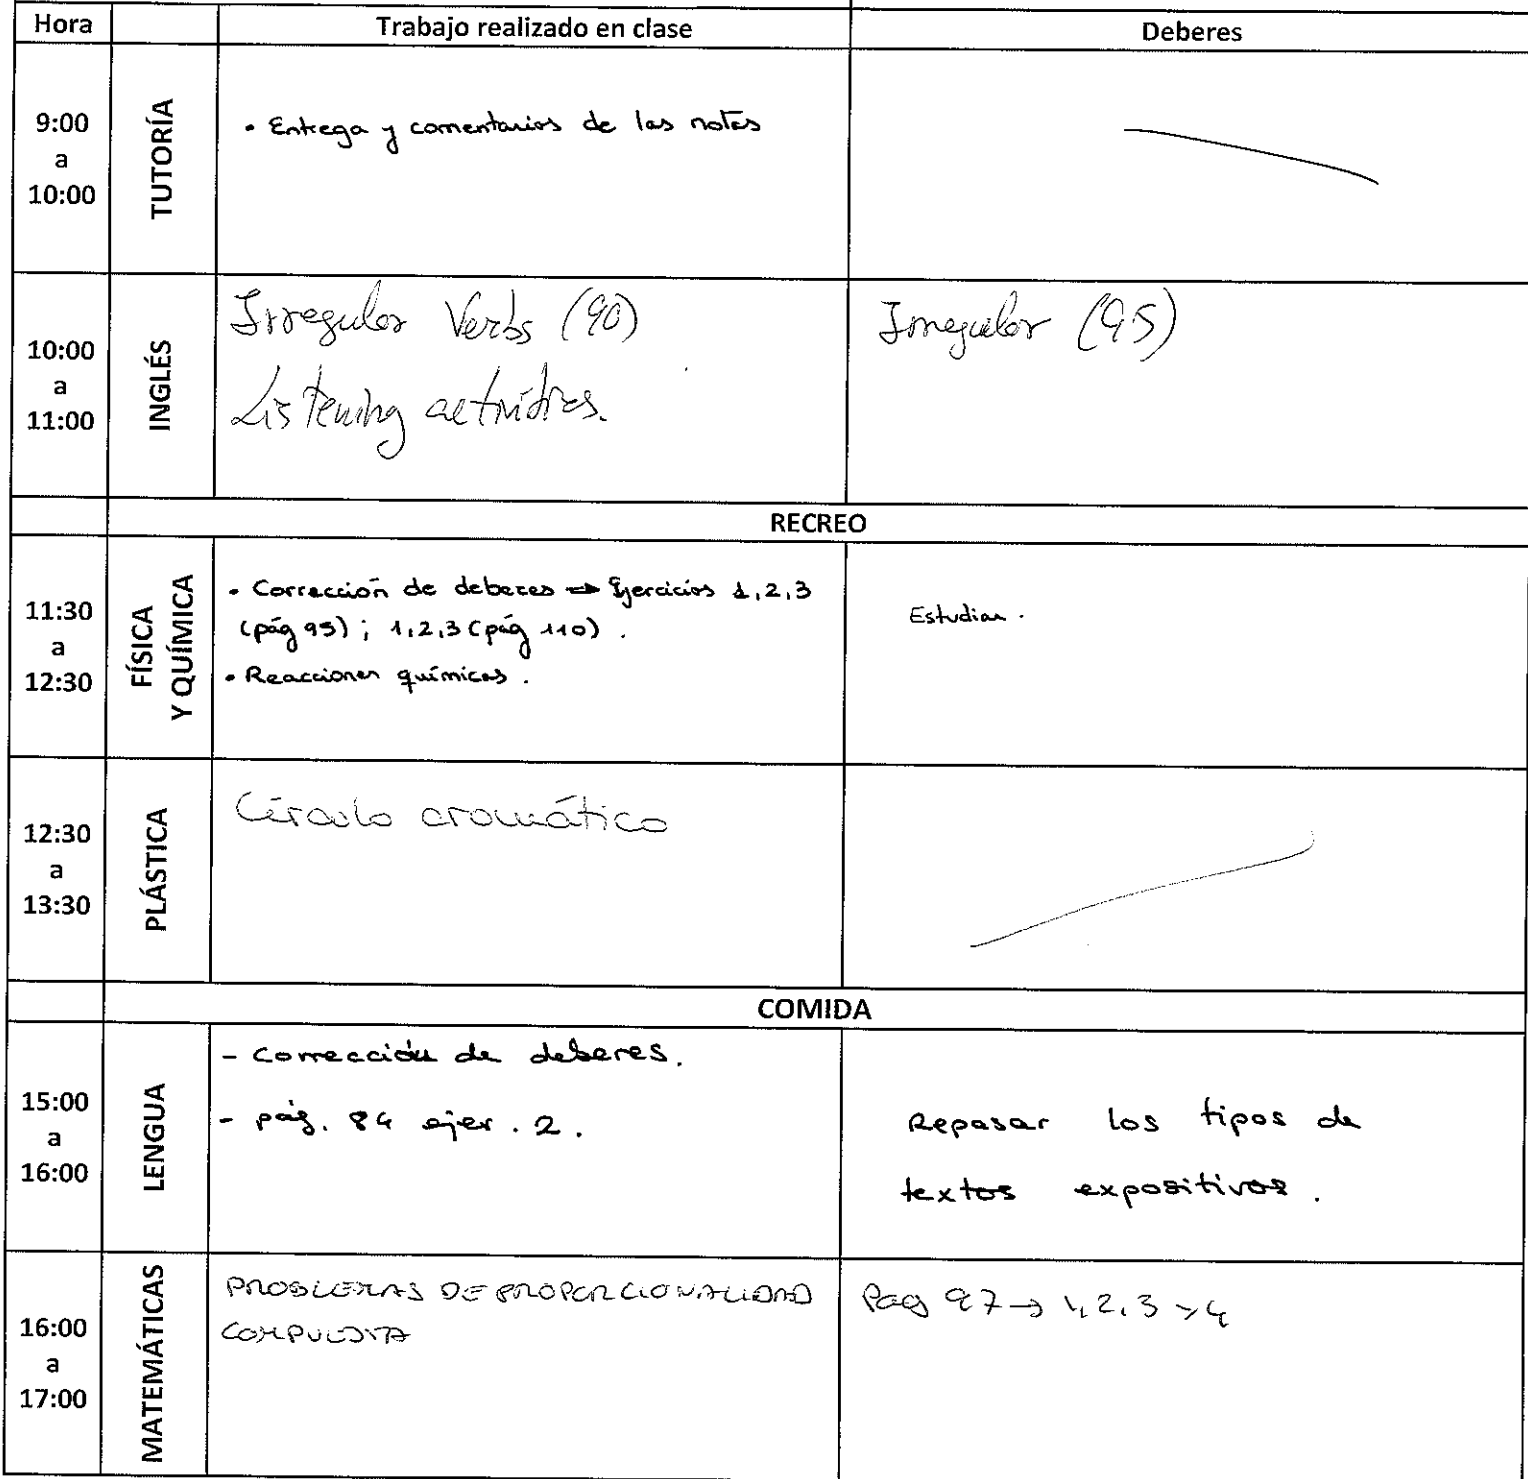 Hora Trabajo realizado en clase Deberes
9:00
a
10:00
TUTORÍA
• Entrega y comentarios de las notas
10:00
a
11:00
INGLÉS
Irregular Verbs (90)
Listening activities.
Irregular (95)
RECREO
11:30
a
12:30
FÍSICA
Y QUÍMICA
• Corrección de deberes → Ejercicios 1,2,3
(pág 95); 1,2,3 (pág 110).
• Reacciones químicas.
Estudiar.
12:30
a
13:30
PLÁSTICA
Círculo cromático
COMIDA
15:00
a
16:00
LENGUA
- Corrección de deberes.
- pág. 84 ejer. 2.
Repasar los tipos de
textos expositivos.
16:00
a
17:00
MATEMÁTICAS
PROBLEMAS DE PROPORCIONALIDAD
COMPUESTA
Pag 97 → 1, 2, 3 y 4